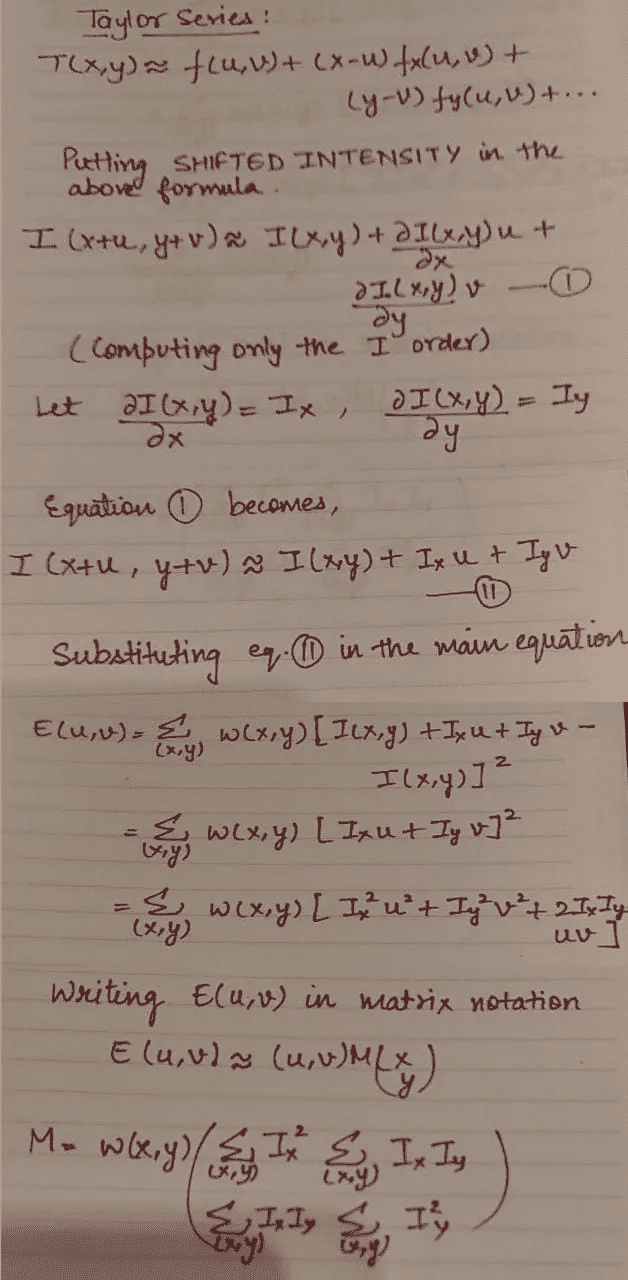 Taylor Series:
T(x,y) ≈ f(u,v) + (x-u) fx(u,v) +
(y-v) fy(u,v) + ...
Putting SHIFTED INTENSITY in the
above formula.
I (x+u, y+v) ≈ I(x,y) + ∂I(x,y)/∂x u +
∂I(x,y)/∂y v —①
(Computing only the I order)
Let ∂I(x,y)/∂x = Ix , ∂I(x,y)/∂y = Iy
Equation ① becomes,
I (x+u, y+v) ≈ I(x,y) + Ix u + Iy v
—⑪
Substituting eq. ⑪ in the main equation
E(u,v) = Σ(x,y) w(x,y) [ I(x,y) + Ix u + Iy v -
I(x,y)]²
= Σ(x,y) w(x,y) [ Ix u + Iy v]²
= Σ(x,y) w(x,y) [ Ix² u² + Iy² v² + 2 Ix Iy
uv ]
Writing E(u,v) in matrix notation
E (u,v) ≈ (u,v) M (x
y)
M = w(x,y) ( Σ(x,y) Ix² Σ(x,y) Ix Iy
Σ(x,y) Ix Iy Σ(x,y) Iy² )